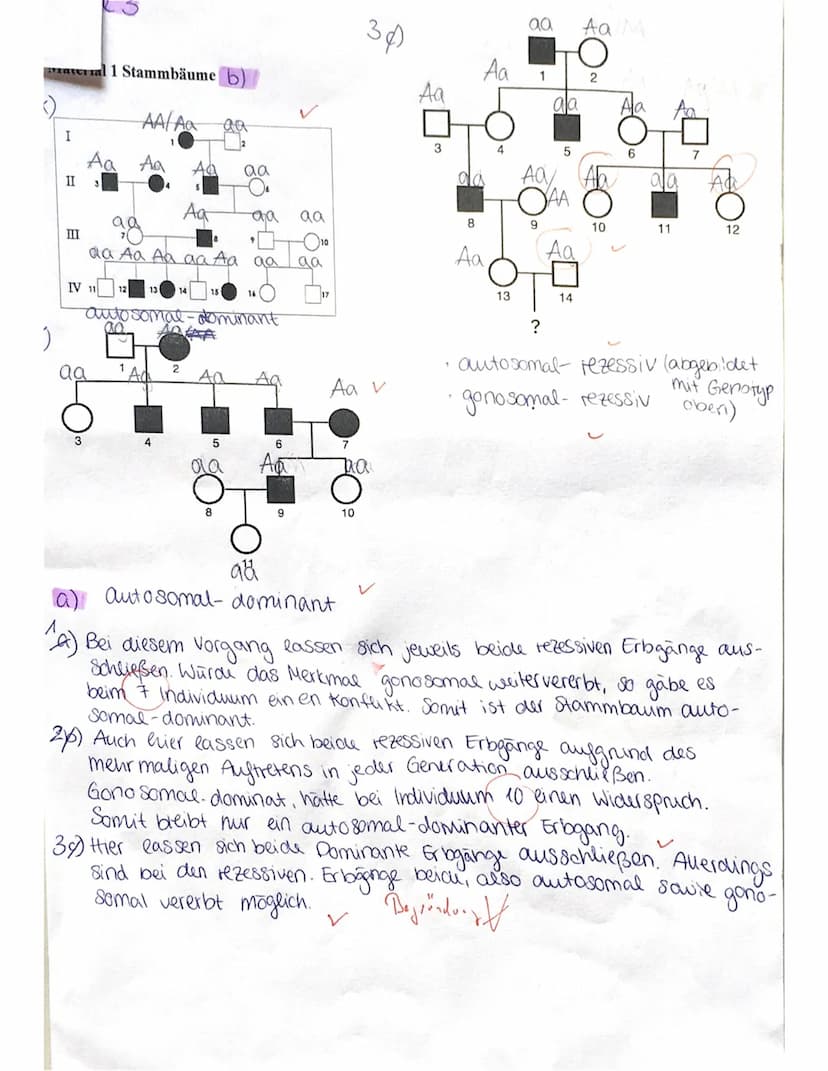 Material 1 Stammbäume b)
3c)
aa Aa
1 2
Aa Aa aa Aa Aa
3 4 5 6 7
aa Aa/AA Aa aa Aa
8 9 10 11 12
Aa Aa
13 14
?
I AA/Aa aa
1 2
II Aa Aa Aa aa
3 4 5 6
III aa Aa aa aa
7 8 9 10
aa Aa Aa aa Aa aa aa
IV 11 12 13 14 15 16 17
autosomal-dominant
aa Aa
1 2
aa Aa Aa Aa Aa
3 4 5 6 7
aa Aa aa
8 9 10
aa
· autosomal-rezessiv (abgebidet
mit Genotyp
· gonosomal-rezessiv oben)
a) autosomal-dominant
1a) Bei diesem Vorgang lassen sich jeweils beide rezessiven Erbgänge aus-
schließen. Würde das Merkmal gonosomal weitervererbt, so gäbe es
beim 7 Individuum einen Konflikt. Somit ist der Stammbaum auto-
somal-dominant.
2b) Auch hier lassen sich beide rezessiven Erbgänge aufgrund des
mehrmaligen Auftretens in jeder Generation ausschließen.
Gonosomal-dominat, hätte bei Individuum 10 einen Widerspruch.
Somit bleibt nur ein autosomal-dominanter Erbgang.
3c) Hier lassen sich beide Dominante Erbgänge ausschließen. Allerdings
sind bei den rezessiven Erbgänge beide, also autosomal sowie gono-
somal vererbt möglich.
Begründung